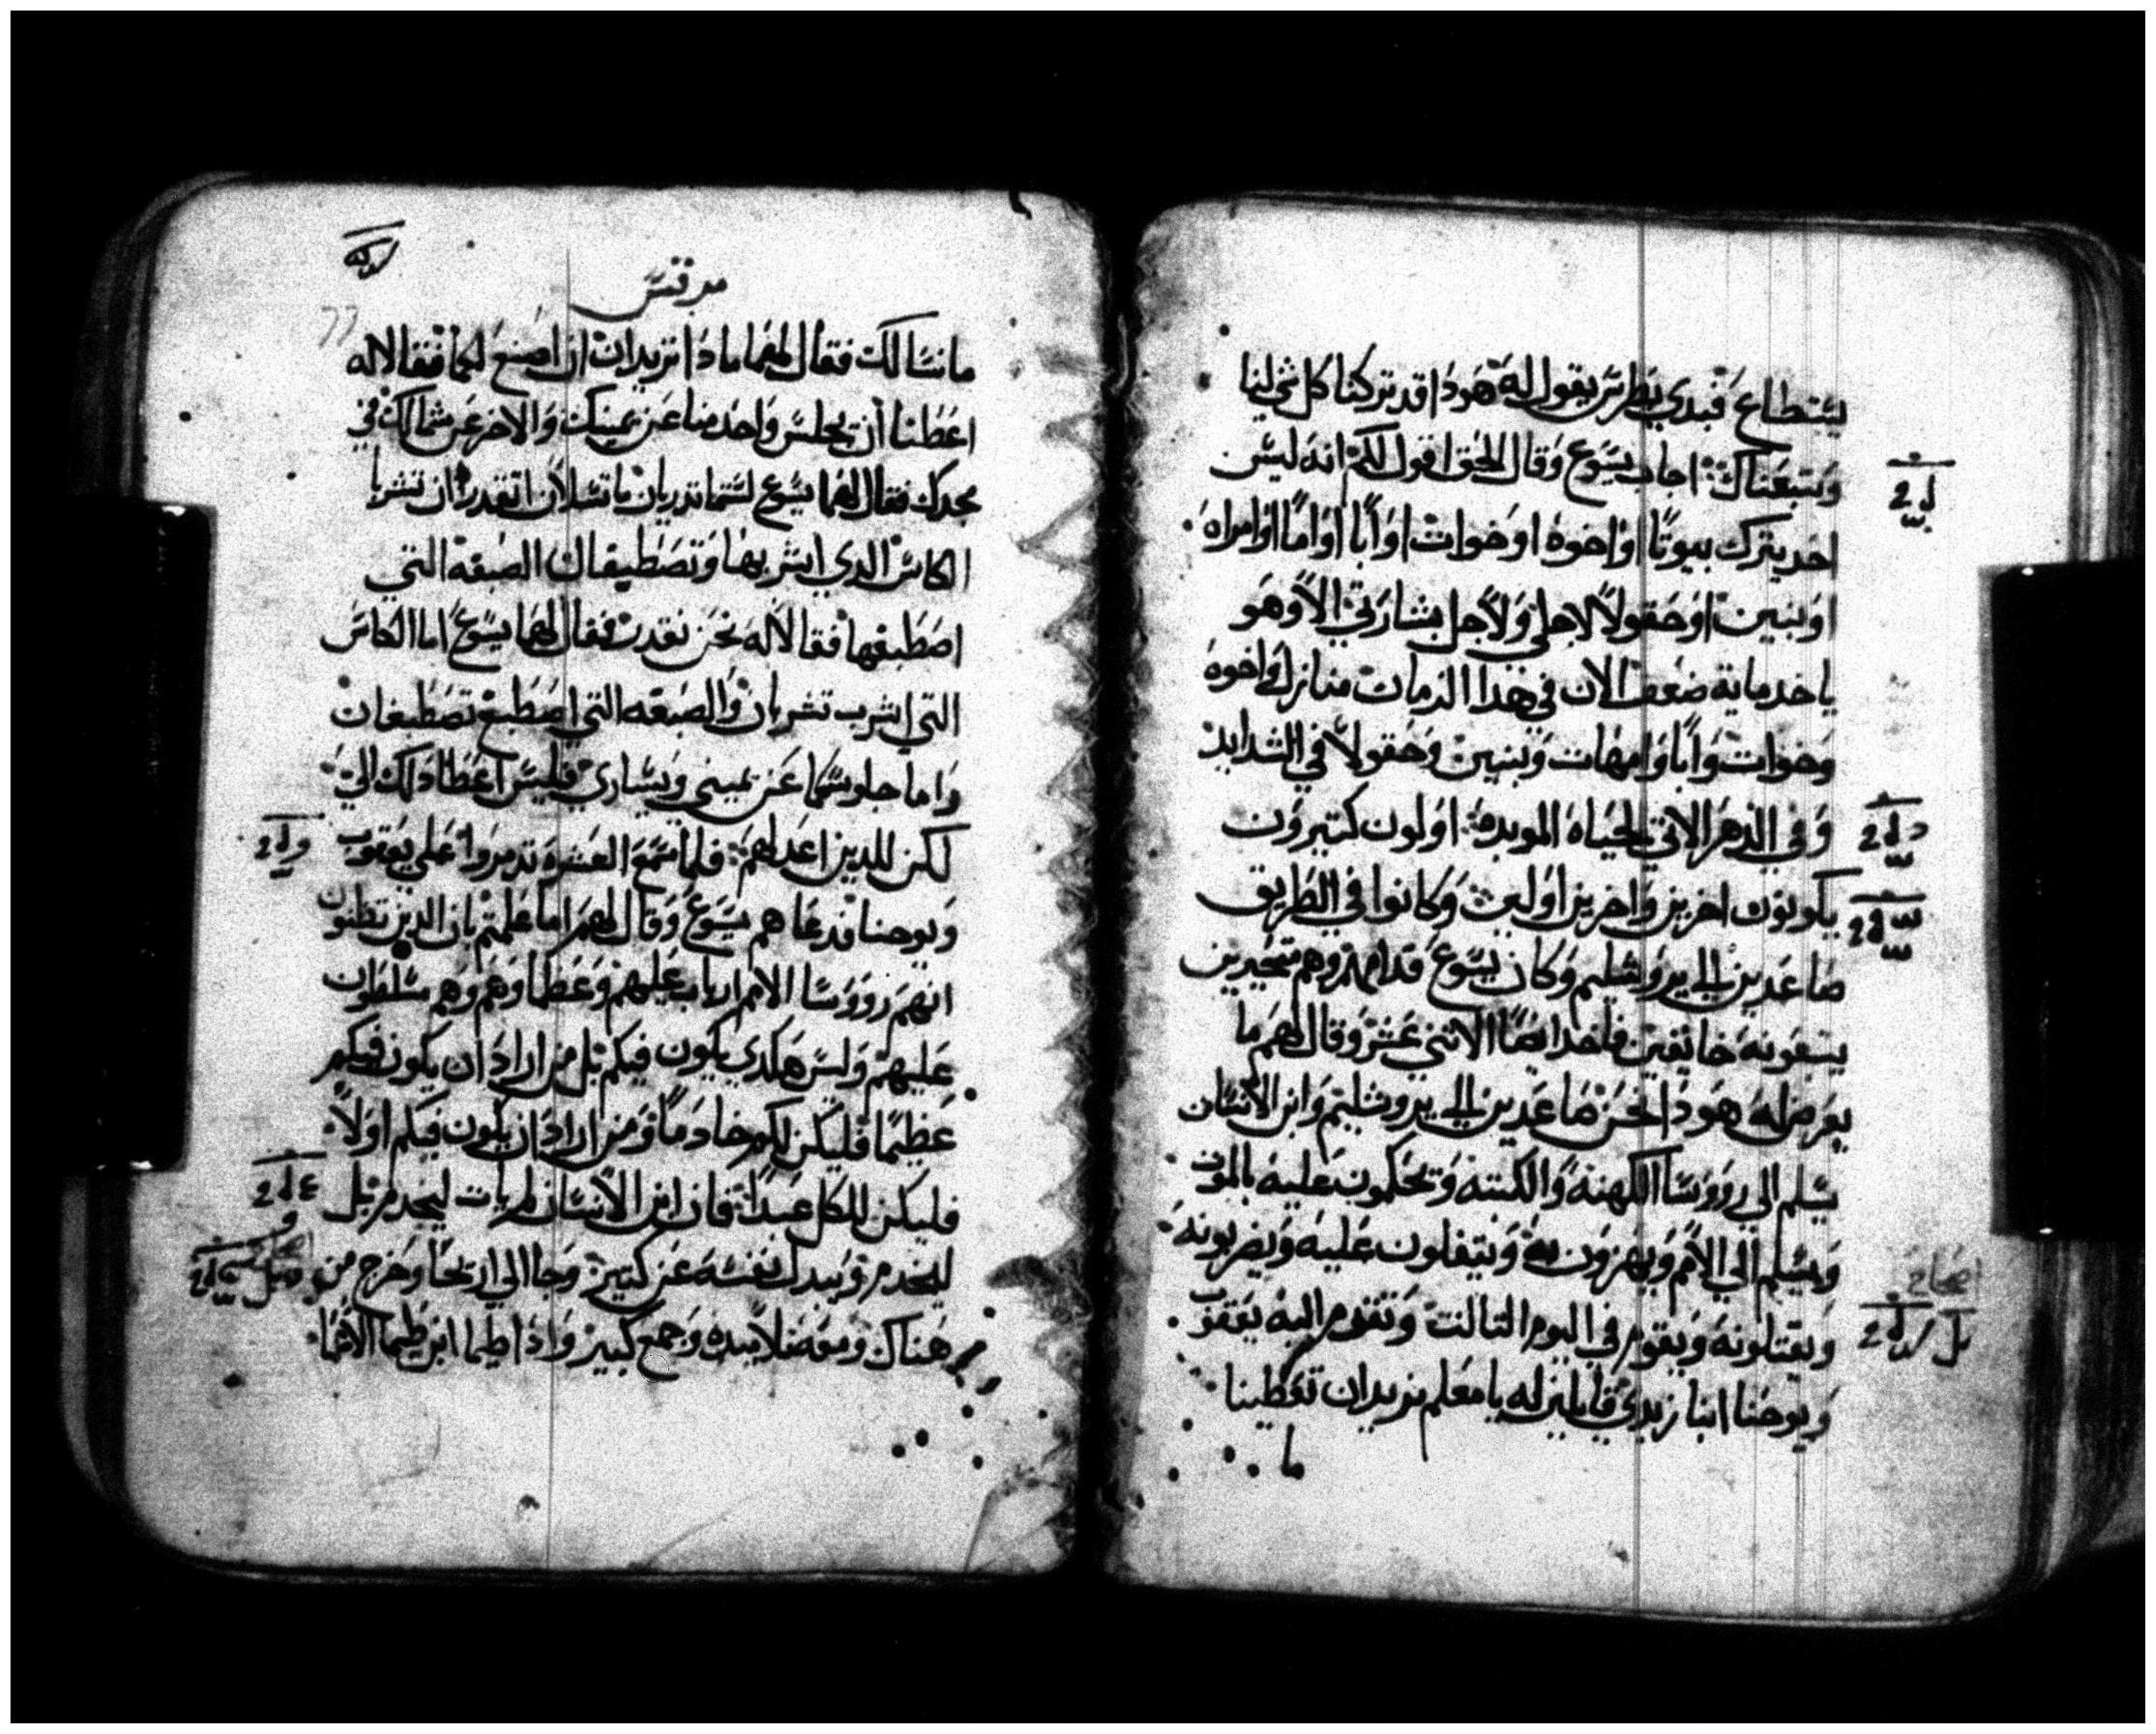 يستطاع فبدي بطرس يقول له هودا قد تركنا كل شي لنا
وتبعناك اجاب يسوع وقال الحق اقول لكم انه ليس
احد يترك بيوتا او اخوه او خوات او ابا او اما او امراه
او بنين او حقولا لاجلي ولاجل بشارتي الا وهو
ياخد ماية ضعف الان في هدا الزمان منازل واخوه
وخوات وابا وامهات وبنين وحقولا في الشدايد
وفي الدهر الاتي الحياه الموبده اولون كتيرون
يكونون اخرين واخرين اولين وكانوا في الطريق
صاعدين الي يروشليم وكان يسوع قدامهم وهم متحيرين
يتبعونه خايفين فاخد ايضا الاثني عشر وقال لهم ما
يعرض له هودا نحن صاعدين الي يروشليم وابن الانسان
يسلم الي رووسا الكهنه والكتبه ويحكمون عليه بالموت
ويسلم الي الامم ويهزون به ويتفلون عليه ويضربونه
ويقتلونه ويقوم في اليوم التالت وتقدم اليه يعقوب
ويوحنا ابنا زبدي قايلين له يا معلم نريد ان تعطينا
ما
مرقس
77
ما نسالك فقال لهما مادا تريدان ان اصنع لكما فقالا له
اعطنا ان يجلس واحد منا عن يمينك والاخر عن شمالك في
مجدك فقال لهما يسوع لستما تدريان ما تسلان اتقدران تشربا
الكاس الدي اشربها وتصطبغان الصبغه التي
اصطبغها فقالا له نحن نقدر فقال لهما يسوع اما الكاس
التي اشرب تشربان والصبغه التي اصطبغ تصطبغان
واما جلوسكما عن يميني ويساري فليس اعطا دلك الي
لكن للدين اعد لهم فلما سمع العشره تدمروا علي يعقوب
ويوحنا فدعاهم يسوع وقال لهم اما علمتم بان الدين تظنون
انهم رووسا الامم ارباب عليهم وعظماوهم وهم مسلطون
عليهم وليس هكدي يكون فيكم بل من اراد ان يكون فيكم
عظيما فليكن لكم خادما ومن اراد ان يكون فيكم اولا
فليكن للكل عبدا فان ابن الانسان لم يات ليخدم بل
ليخدم ويبدل نفسه عن كتيرين وجا الي اريحا وخرج من
هناك ومعه تلاميده وجمع كبير وادا طيما ابن طيما الاعما